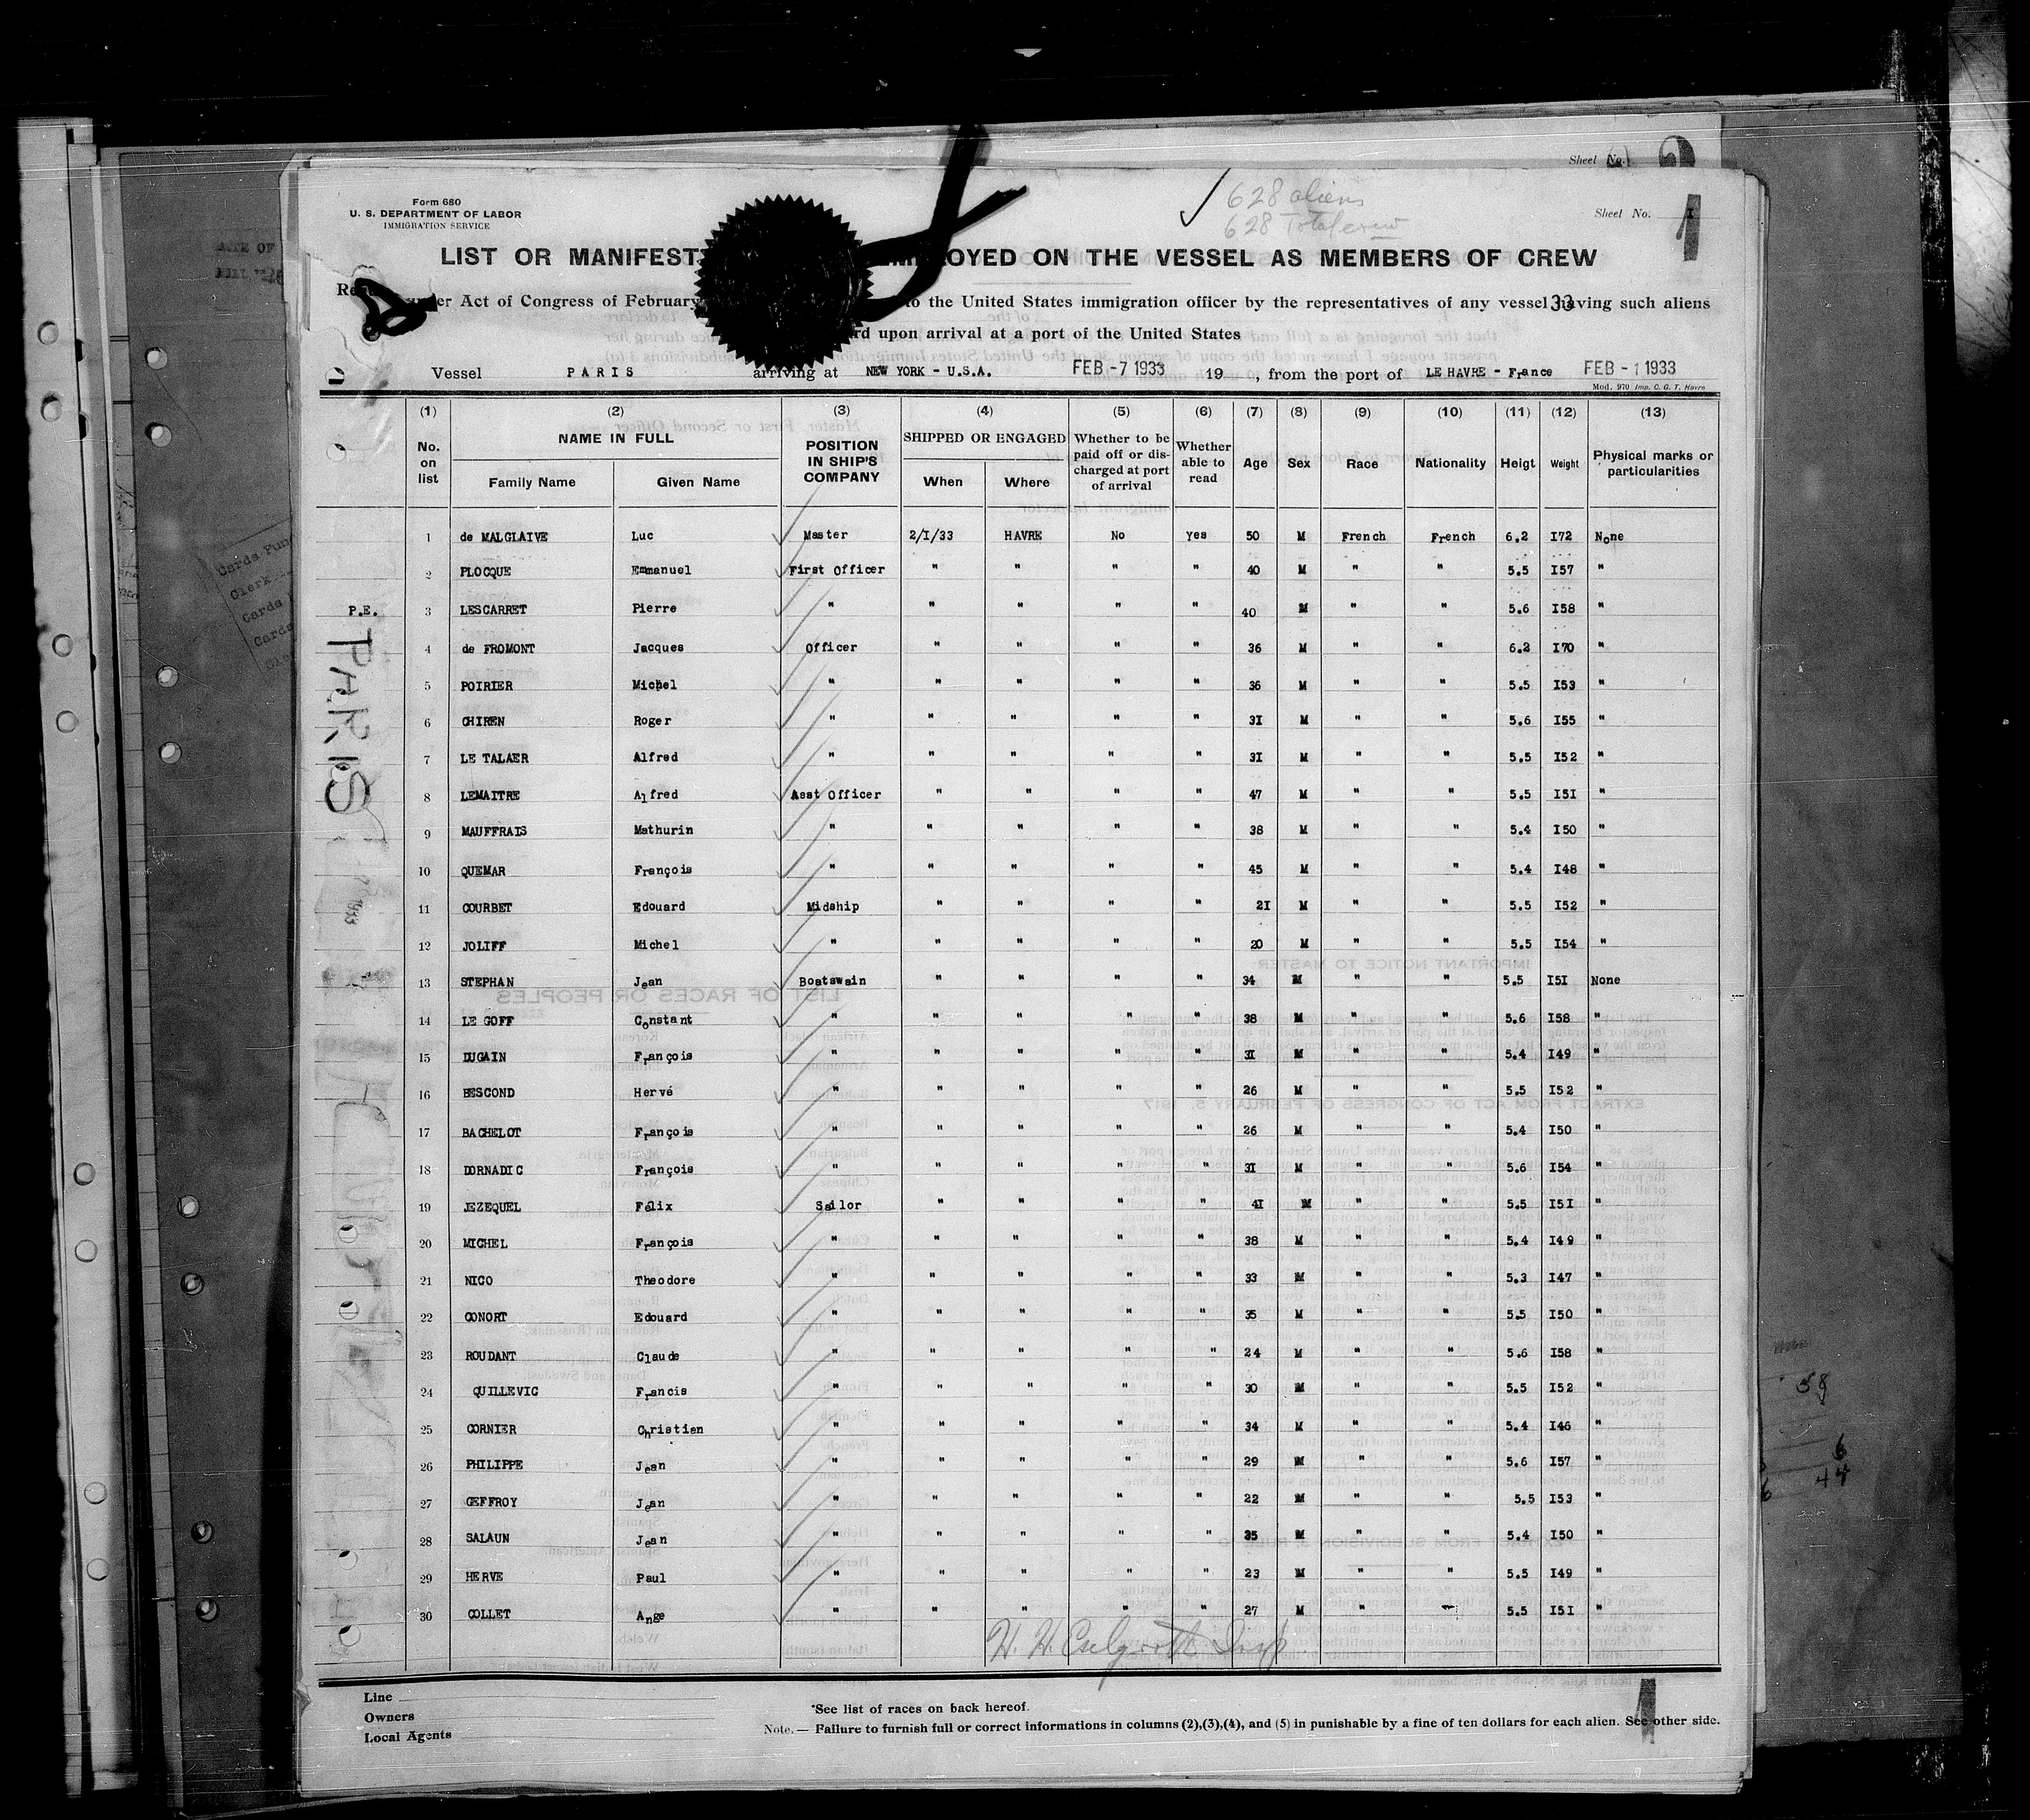 Sheet No.
Form 680
U. S. DEPARTMENT OF LABOR
IMMIGRATION SERVICE
628 aliens
628 Total crew
Sheet No. 1
LIST OR MANIFEST EMPLOYED ON THE VESSEL AS MEMBERS OF CREW
under Act of Congress of February to the United States immigration officer by the representatives of any vessel having such aliens
33
upon arrival at a port of the United States
Vessel PARIS arriving at NEW YORK - U.S.A. FEB -7 1933 19 , from the port of LE HAVRE - France FEB -1 1933
Mod. 970 Imp. C. G. T. Havre
(1) (2) (3) (4) (5) (6) (7) (8) (9) (10) (11) (12) (13)
No. on list NAME IN FULL Family Name Given Name POSITION IN SHIP'S COMPANY SHIPPED OR ENGAGED When Where Whether to be paid off or discharged at port of arrival Whether able to read Age Sex Race Nationality Heigt Weight Physical marks or particularities
1 de MALGLAIVE Luc Master 2/I/33 HAVRE No yes 50 M French French 6.2 I72 None
2 PLOCQUE Emmanuel First Officer " " " " 40 M " " 5.5 I57 "
P.E. 3 LESCARRET Pierre " " " " " 40 M " " 5.6 I58 "
4 de FROMONT Jacques Officer " " " " 36 M " " 6.2 I70 "
5 POIRIER Michel " " " " " 36 M " " 5.5 I53 "
6 CHIREN Roger " " " " " 3I M " " 5.6 I55 "
7 LE TALAER Alfred " " " " " 3I M " " 5.5 I52 "
8 LEMAITRE Alfred Asst Officer " " " " 47 M " " 5.5 I5I "
9 MAUFFRAIS Mathurin " " " " " 38 M " " 5.4 I50 "
10 QUEMAR François " " " " " 45 M " " 5.4 I48 "
11 COURBET Edouard Midship " " " " 2I M " " 5.5 I52 "
12 JOLIFF Michel " " " " " 20 M " " 5.5 I54 "
13 STEPHAN Jean Boatswain " " " " 34 M " " 5.5 I5I None
14 LE GOFF Constant " " " " " 38 M " " 5.6 I58 "
15 DUGAIN François " " " " " 3I M " " 5.4 I49 "
16 BESCOND Hervé " " " " " 26 M " " 5.5 I52 "
17 BACHELOT François " " " " " 26 M " " 5.4 I50 "
18 DORNADIC François " " " " " 3I M " " 5.6 I54 "
19 JEZEQUEL Félix Sailor " " " " 4I M " " 5.5 I5I "
20 MICHEL François " " " " " 38 M " " 5.4 I49 "
21 NICO Theodore " " " " " 33 M " " 5.3 I47 "
22 CONORT Edouard " " " " " 35 M " " 5.5 I50 "
23 ROUDANT Claude " " " " " 24 M " " 5.6 I58 "
24 QUILLEVIC Francis " " " " " 30 M " " 5.5 I52 "
25 CORNIER Christien " " " " " 34 M " " 5.4 I46 "
26 PHILIPPE Jean " " " " " 29 M " " 5.6 I57 "
27 GEFFROY Jean " " " " " 22 M " " 5.5 I53 "
28 SALAUN Jean " " " " " 35 M " " 5.4 I50 "
29 HERVE Paul " " " " " 23 M " " 5.5 I49 "
30 COLLET Ange " " " " " 27 M " " 5.5 I5I "
PARIS
Line
Owners
Local Agents
*See list of races on back hereof.
Note. — Failure to furnish full or correct informations in columns (2),(3),(4), and (5) in punishable by a fine of ten dollars for each alien. See other side.